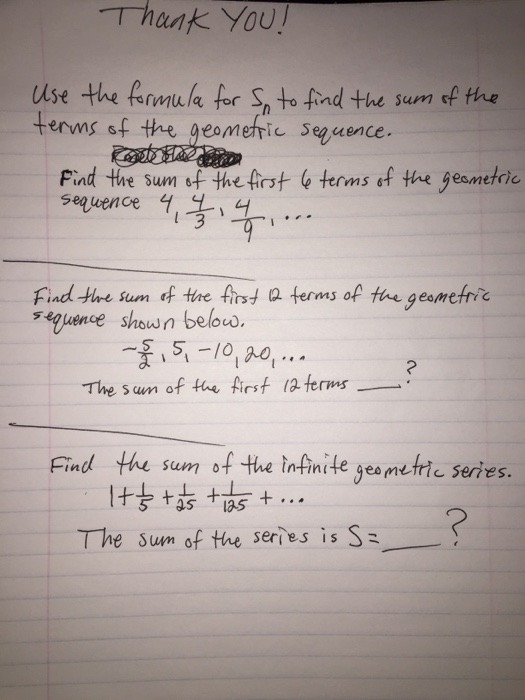 Thank YOU!
Use the formula for Sn to find the sum of the
terms of the geometric sequence.
Find the sum of the first 6 terms of the geometric
sequence 4, 4/3, 4/9, ...
Find the sum of the first 12 terms of the geometric
sequence shown below.
-5/2, 5, -10, 20, ...
The sum of the first 12 terms ___?
Find the sum of the infinite geometric series.
1 + 1/5 + 1/25 + 1/125 + ...
The sum of the series is S = ___?